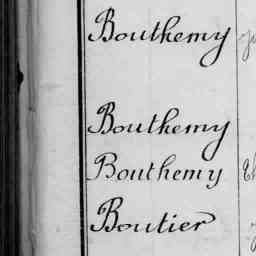 Bouthemy
Bouthemy
Bouthemy
Boutier